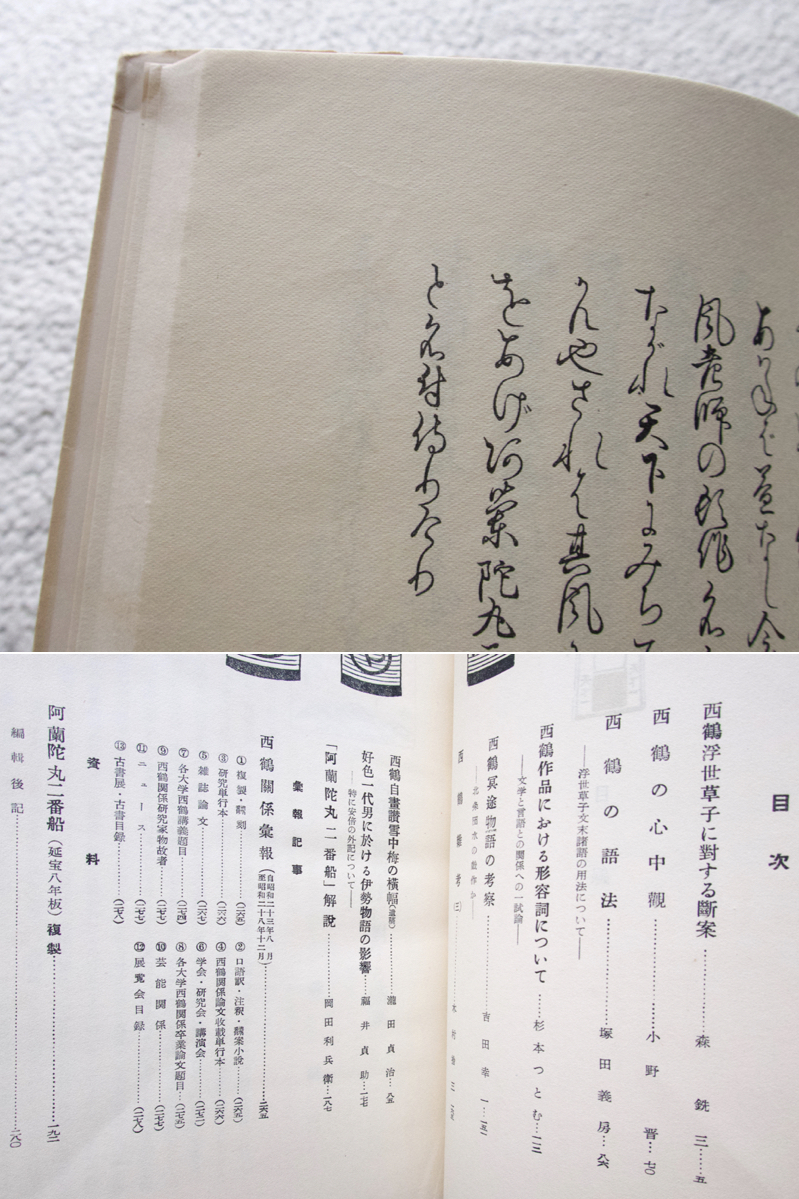 風聲師の
ながれ天下にみち
かんやされは其風
をあげ阿蘭陀丸二
と名付侍り
目次
西鶴浮世草子に對する斷案………森銑三……五
西鶴の心中觀………小野晋…七〇
西鶴の語法………塚田義房…八六
――浮世草子文末諸語の用法について――
西鶴作品における形容詞について…杉本つとむ…一三一
――文学と言語との關係への一試論――
西鶴冥途物語の考察………吉田幸一…一五一
――北条団水の戯作か――
西鶴雜考(三)
西鶴自畫讃雪中梅の橫幅………瀧田貞治…八五
好色一代男に於ける伊勢物語の影響………福井貞助…一七一
――特に安倍の外記について――
「阿蘭陀丸二番船」解說………岡田利兵衛…一八七
彙報記事
西鶴關係彙報(自昭和二十三年八月至昭和二十八年十二月)………二六五
①複製・飜刻………(二六五) ②口語訳・注釈・飜案小說………(二六五)
③研究単行本………(二六六) ④西鶴関係論文收載単行本………(二六六)
⑤雑誌論文………(二六七) ⑥学会・研究会・講演会………(二七二)
⑦各大学西鶴講義題目………(二七四) ⑧各大学西鶴関係卒業論文題目……(二七五)
⑨西鶴関係研究家物故者………(二七七) ⑩芸能関係………(二七七)
⑪ニュース………(二七七) ⑫展覧会目録………(二七八)
⑬古書展・古書目録………(二七八)
資料
阿蘭陀丸二番船(延宝八年板)複製………一九一
編輯後記………二八〇